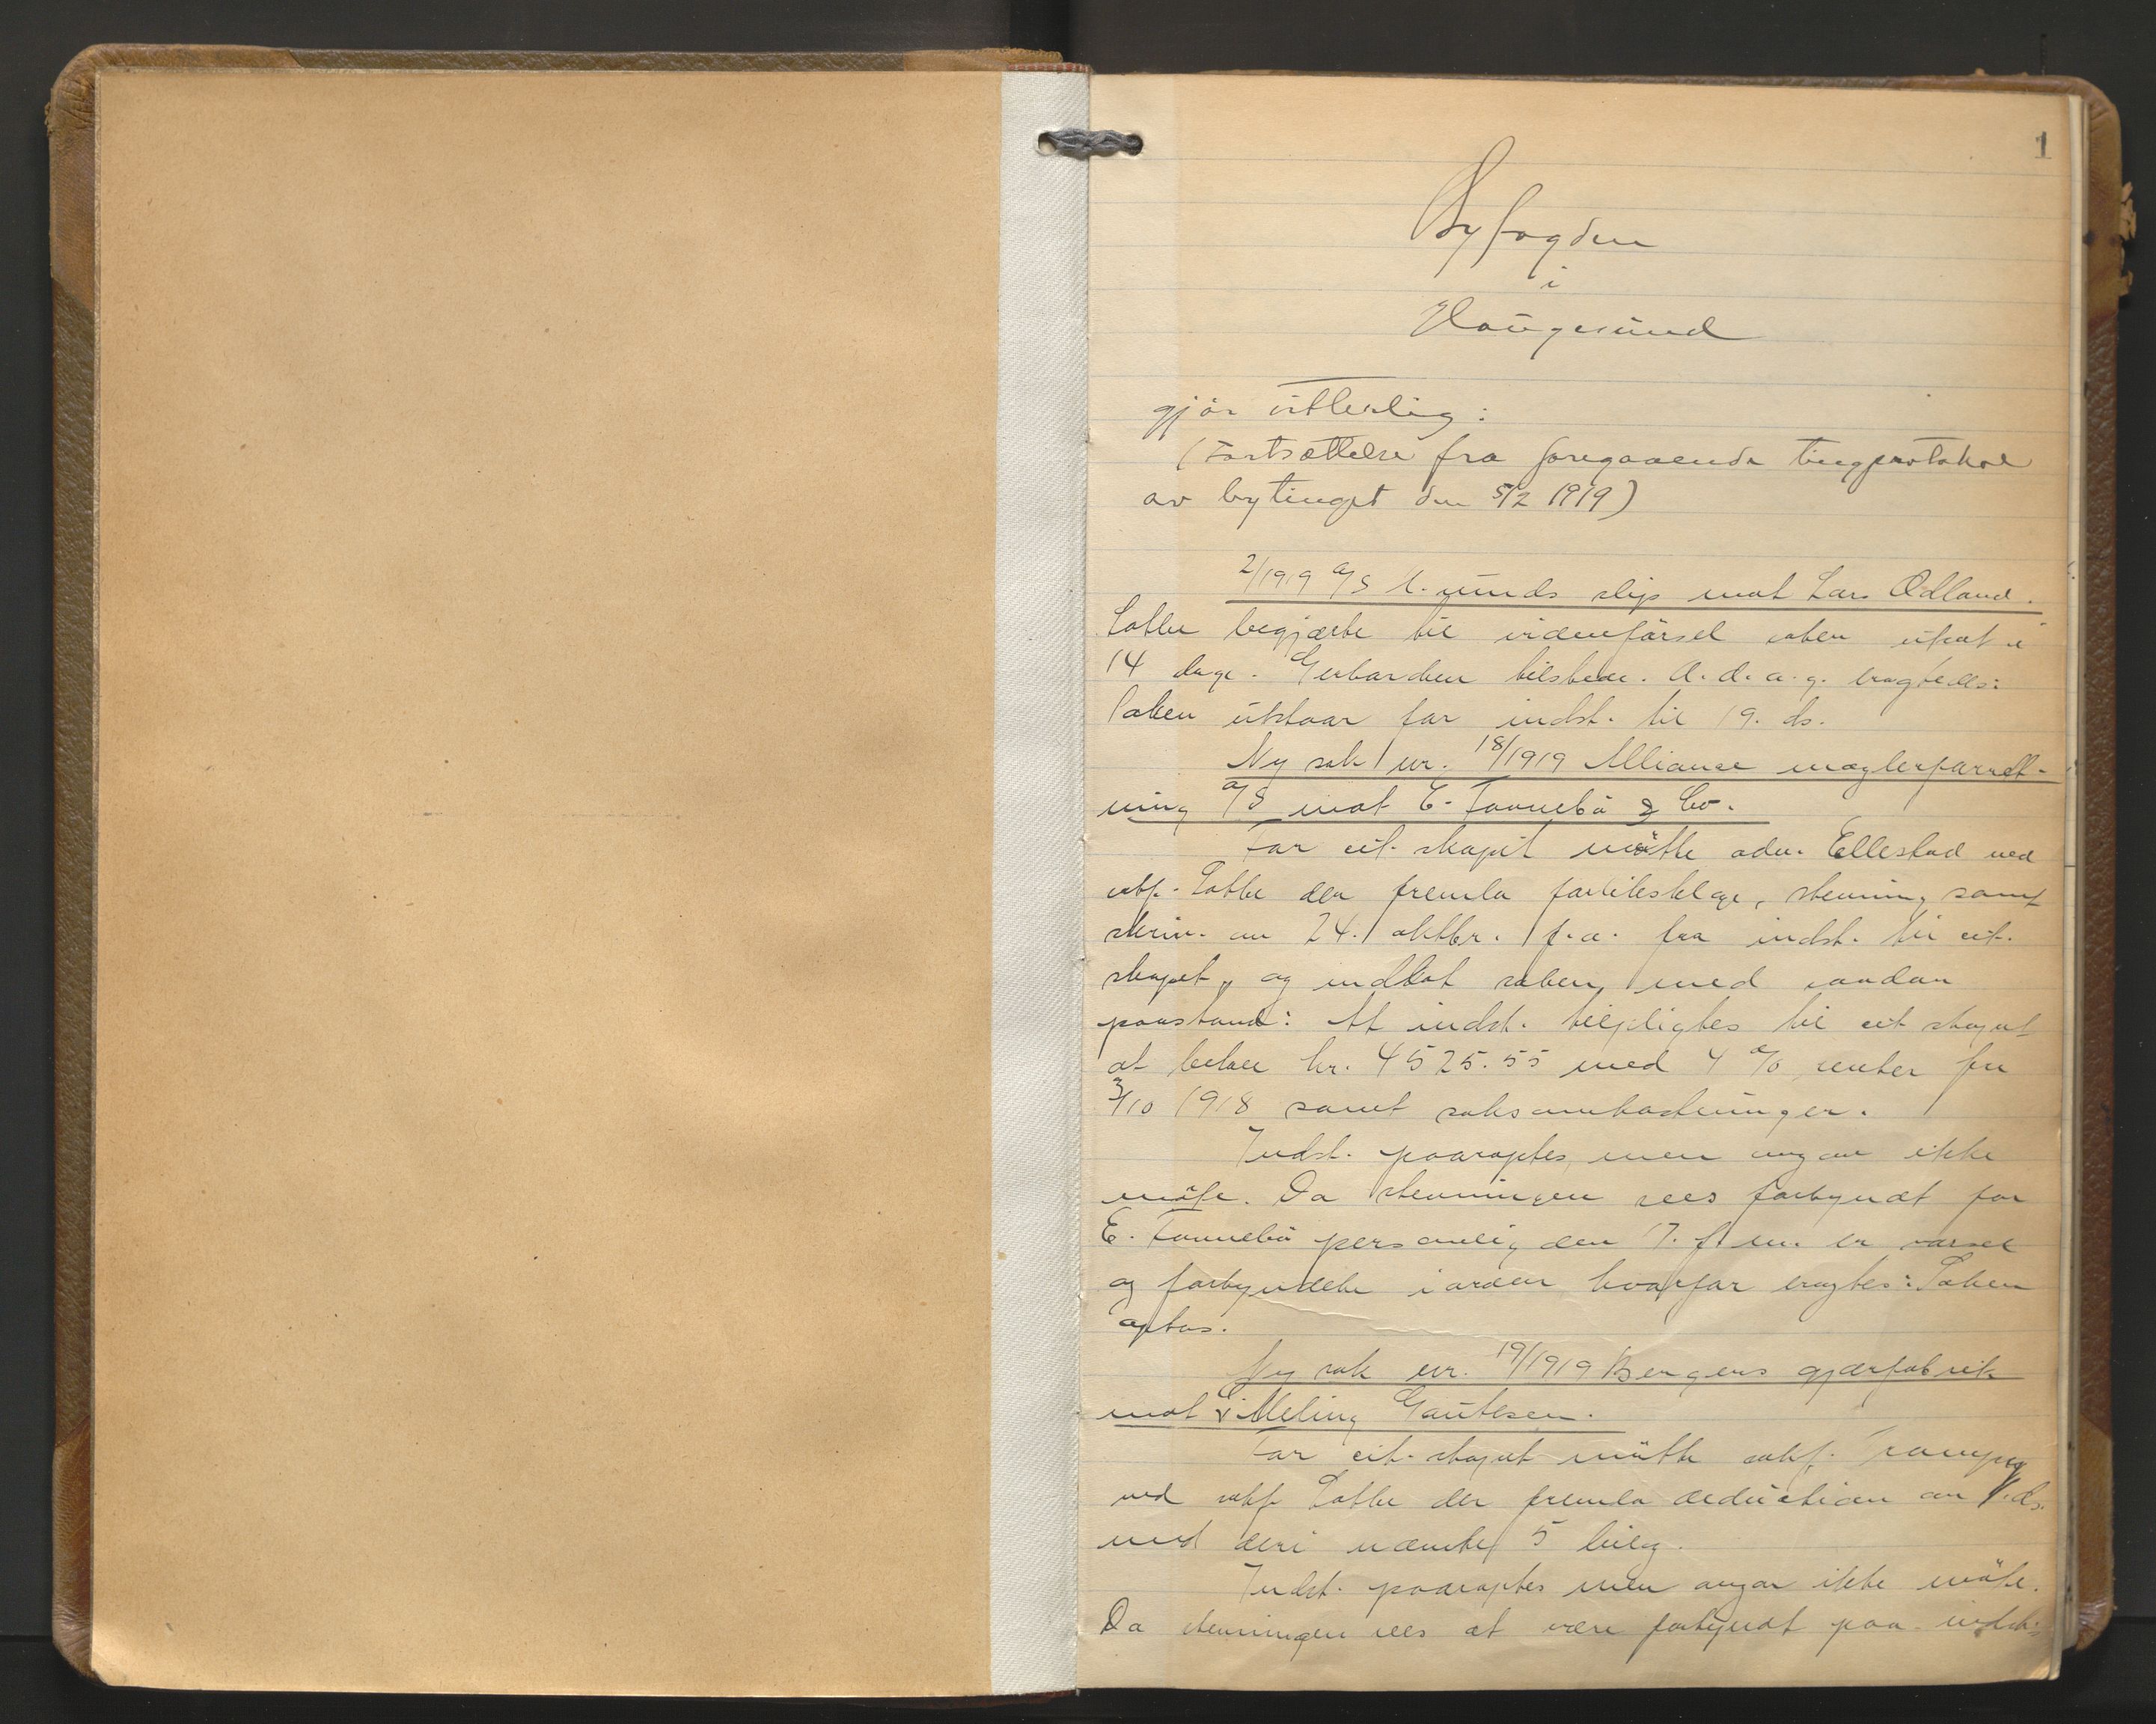 1
Byfogden
i
Haugesund
gjör vitterlig:
(Fortsættelse fra foregaaende tingprotokol
av bytinget den 5/2 1919)
2/1919 a/S H.sunds slip mot Lars Ødland.
Lothe begjærte til videreförsel saken utsat i
14 dage. Gerhardsen tilstede. A. d. a. g. eragtedes:
Saken utstaar for indst. til 19. ds.
Ny sak nr. 18/1919 Alliance mæglerforret-
ning a/S mot E. Tonnebö & Co.
For cit. skapet mötte adv. Ellestad ved
sakf. Lothe der fremla forliksklage, stevning samt
skriv. av 24. oktbr. f.a. fra indst. til cit.
skapet, og indlot saken med saadan
paastand: At indst. tilpligtes til cit skapet
at betale kr. 4525.55 med 4 % renter fra
3/10 1918 samt saksomkostninger.
Indst. paaroptes, men ingen ikke
möte. Da stevningen sees forkyndt for
E. Tonnebö personlig den 17. f. m. er varsel
og forkyndelse i orden hvorfor eragtes: Saken
optas.
Ny sak nr. 19/1919 Bergens gjærfabrik
mot Meling Gautesen.
For cit. skapet mötte sakf.
ved sakf. Lothe der fremla deduction av ds.
med deri nævnte 5 bilag.
Indst. paaroptes men angav ikke möte.
Da stevningen sees at være forkyndt paa indst.